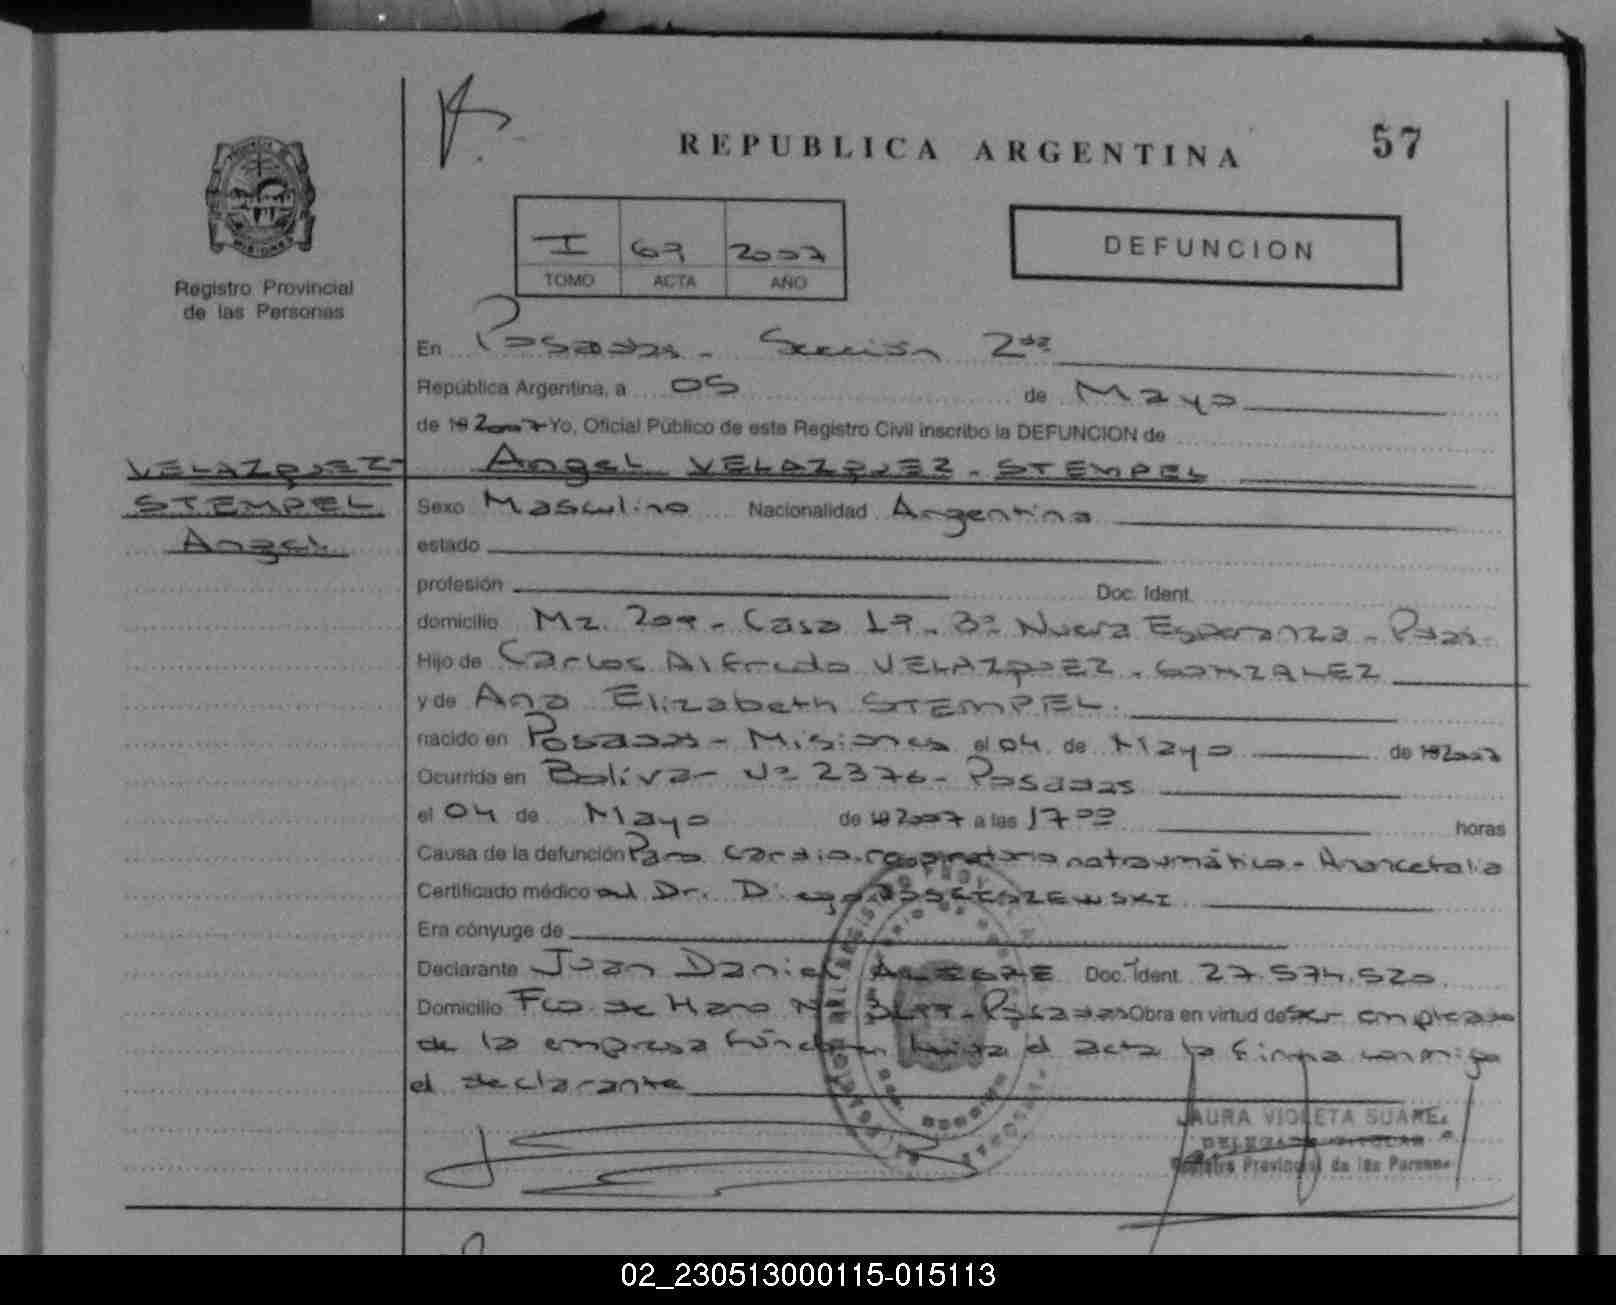 REPUBLICA ARGENTINA
57
PROVINCIA
MISIONES
Registro Provincial
de las Personas
I 69 2007
TOMO ACTA AÑO
DEFUNCION
En Posadas - Sección 2da
República Argentina, a 05 de Mayo
de 19 2007 Yo, Oficial Público de este Registro Civil inscribo la DEFUNCION de
VELAZQUEZ-
STEMPEL
Angel
Angel VELAZQUEZ - STEMPEL
Sexo Masculino Nacionalidad Argentina
estado
profesión Doc. Ident.
domicilio Mz. 209 - Casa 19 - Bº Nueva Esperanza - Pdas.
Hijo de Carlos Alfredo VELAZQUEZ - GONZALEZ
y de Ana Elizabeth STEMPEL.
nacido en Posadas - Misiones el 04 de Mayo de 19 2007
Ocurrida en Bolivar Nº 2376 - Posadas
el 04 de Mayo de 19 2007 a las 17 00 horas
Causa de la defunción Paro Cardio-respiratorio no traumático - Anancefalia
Certificado médico del Dr. Diego
Era cónyuge de
Declarante Juan Daniel ALEGRE Doc. Ident. 27.574.520
Domicilio Fco. de Haro Nº Posadas Obra en virtud de ser empleado
de la empresa fúnebre el acta la firma conmigo
el declarante
LAURA VIOLETA SUAREZ
DELEGADA TITULAR
Registro Provincial de las Personas
02_230513000115-015113